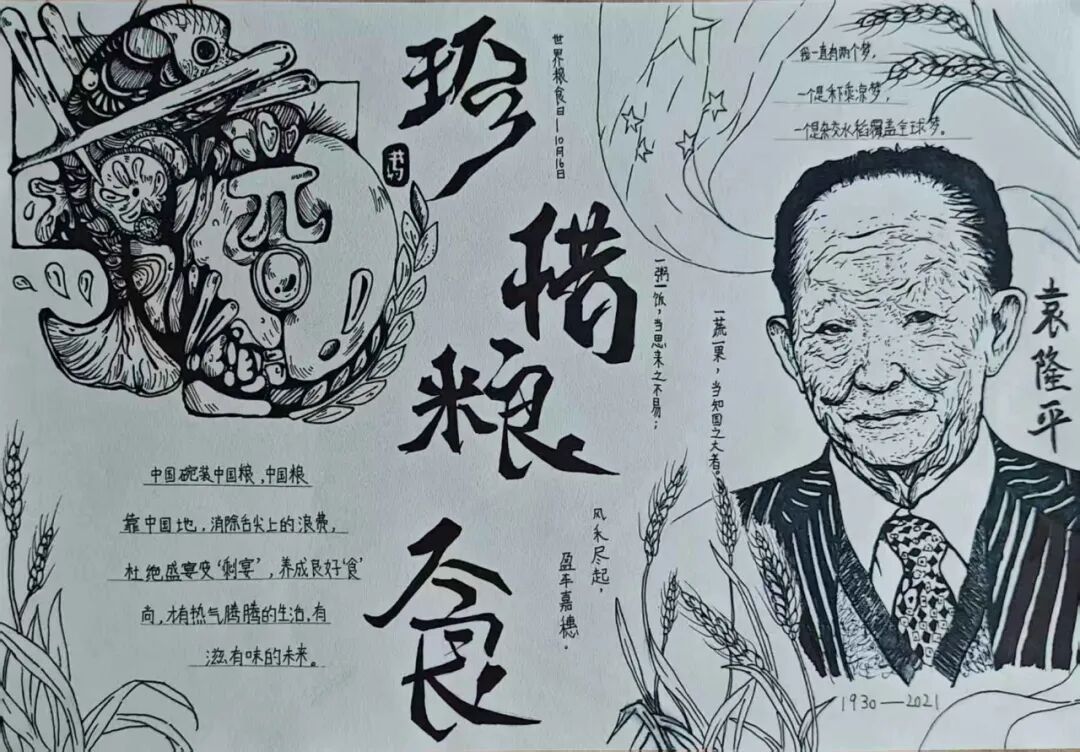 珍惜粮食
世界粮食日—10月16日
我一直有两个梦,
一个是禾下乘凉梦,
一个是杂交水稻覆盖全球梦。
一粥一饭,当思来之不易;
一蔬一果,当知国之大者。
风禾尽起,
盈车嘉穗。
袁隆平
1930—2021
中国碗装中国粮,中国粮
靠中国地,消除舌尖上的浪费,
杜绝盛宴变‘剩宴’,养成良好‘食’
尚,才有热气腾腾的生活,有
滋有味的未来。